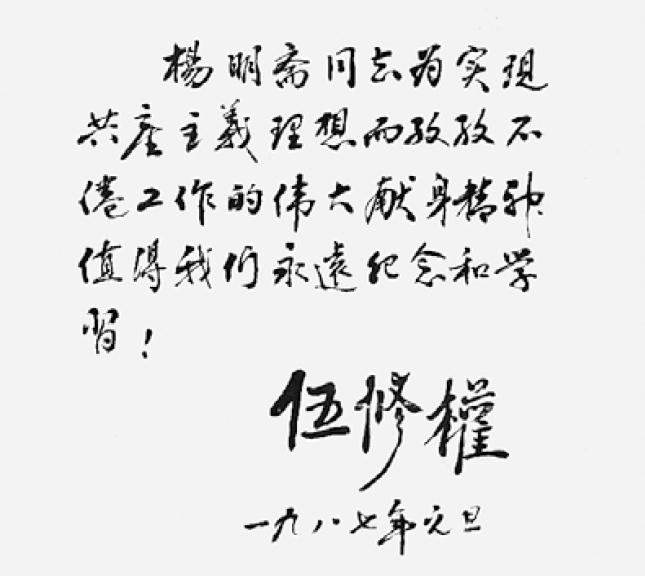 楊明斋同志为实现
共產主義理想而孜孜不
倦工作的伟大献身精神
值得我们永遠纪念和学
習！
伍修權
一九八七年元旦